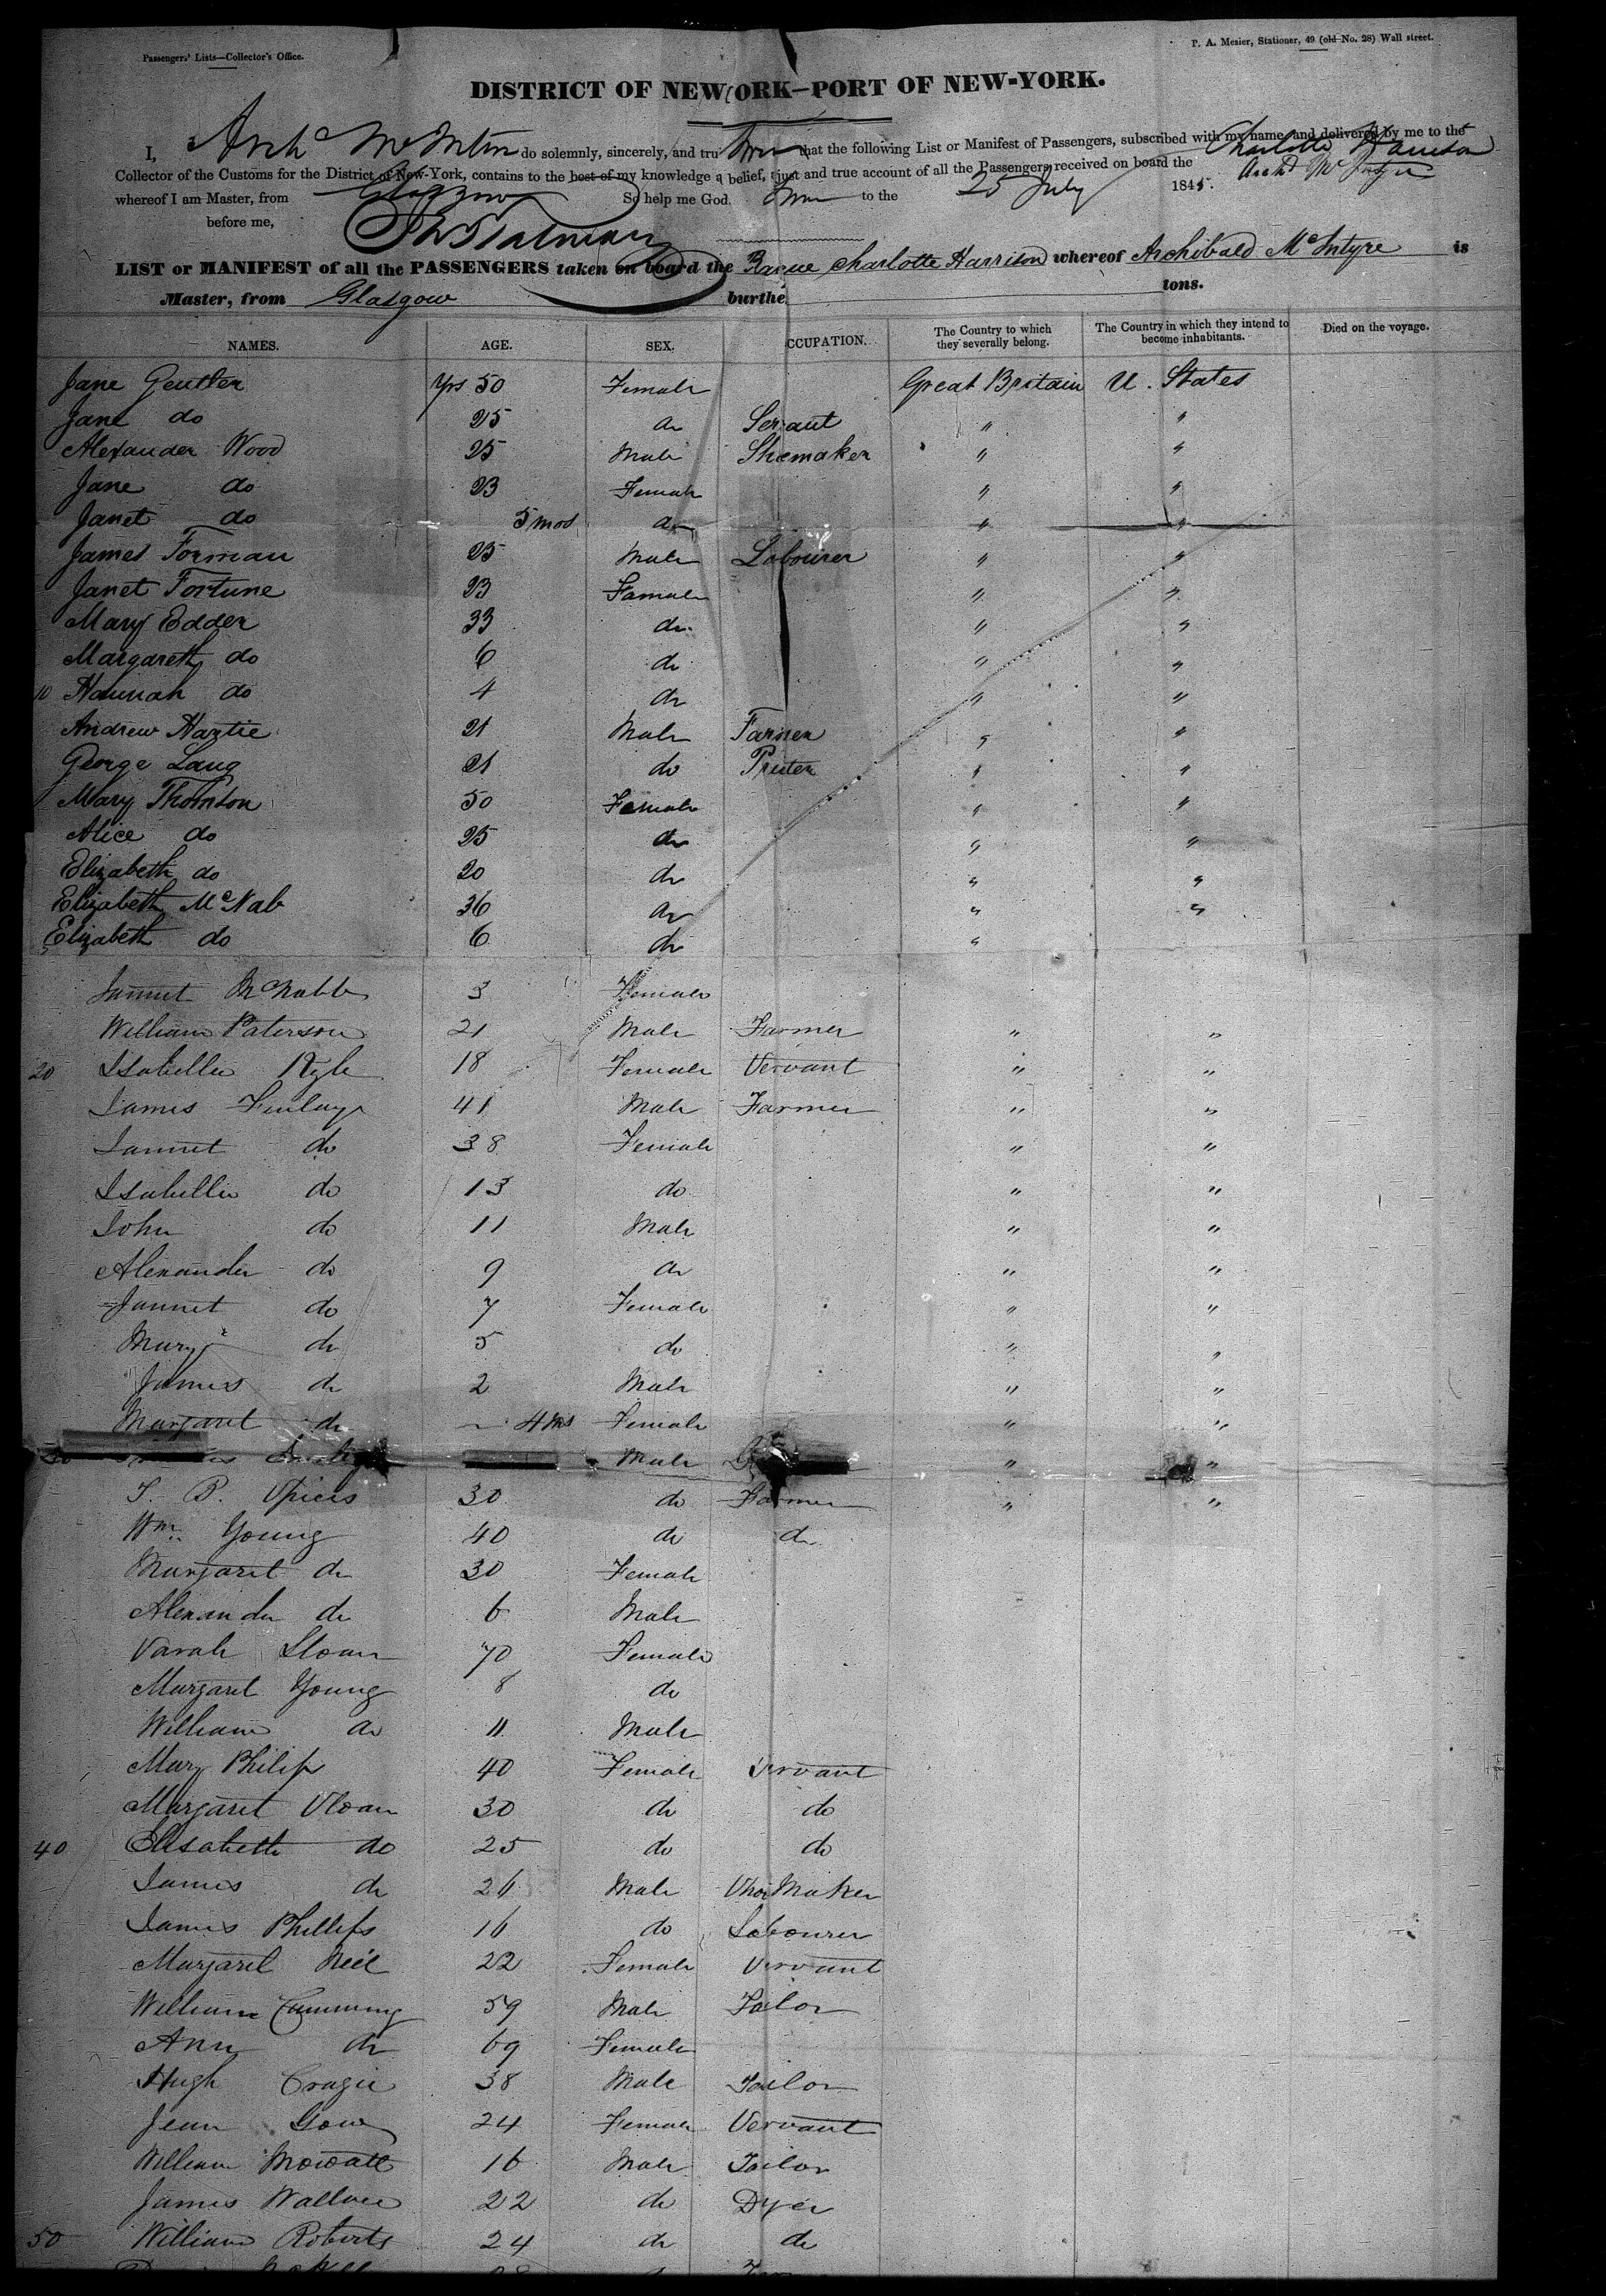 Passengers' Lists—Collector's Office.
P. A. Mesier, Stationer, 49 (old No. 28) Wall street.
DISTRICT OF NEW YORK—PORT OF NEW-YORK.
I, Archd McIntyre do solemnly, sincerely, and tru that the following List or Manifest of Passengers, subscribed with my name, and delivered by me to the
Collector of the Customs for the District of New-York, contains to the best of my knowledge belief, just and true account of all the Passengers received on board the Charlotte Harrison
whereof I am Master, from Glasgow So help me God. to the 25 July 1845. Archd McIntyre
before me,
LIST or MANIFEST of all the PASSENGERS taken on board the Barque Charlotte Harrison whereof Archibald McIntyre is
Master, from Glasgow burthe tons.
NAMES. AGE. SEX. CCUPATION. The Country to which they severally belong. The Country in which they intend to become inhabitants. Died on the voyage.
Jane Yrs 50 Female Great Britain U. States
Jane do 25 do Servant " "
Alexander Wood 25 Male Shoemaker " "
Jane do 23 Female " "
Janet do 5 mos do " "
James Forman 25 Male Labourer " "
Janet Fortune 23 Female " "
Mary Edder 33 do " "
Margareth do 6 do " "
10 Hannah do 4 do " "
Andrew Hartie 21 Male Farmer " "
George Lang 21 do Printer " "
Mary Thomson 50 Female " "
Alice do 25 do " "
Elizabeth do 20 do " "
Elizabeth McNab 36 do " "
Elizabeth do 6 do "
Jannet McNabb 3 Female
William Paterson 21 Male Farmer " "
20 Isabella Kyle 18 Female Servant " "
James Finlay 41 Male Farmer " "
Jannet do 38 Female " "
Isabella do 13 do " "
John do 11 Male " "
Alexander do 9 do " "
Jannet do 7 Female " "
Mary do 5 do " "
James do 2 Male " "
Margaret do 4 ms Female " "
Male " "
J. B. Spiers 30 do Farmer " "
Wm. Young 40 do do
Margaret do 30 Female
Alexander do 6 Male
Sarah Sloan 70 Female
Margaret Young 8 do
William do 11 Male
Mary Philip 40 Female Servant
Margaret Sloan 30 do do
40 Elisabeth do 25 do do
James do 26 Male Shoe Maker
James Phillips 16 do Labourer
Margaret Neil 22 Female Servant
William Cumming 59 Male Tailor
Ann do 69 Female
Hugh Cragie 38 Male Tailor
Jean Gow 24 Female Servant
William Mowatt 16 Male Tailor
James Wallace 22 do Dyer
50 William Roberts 24 do do